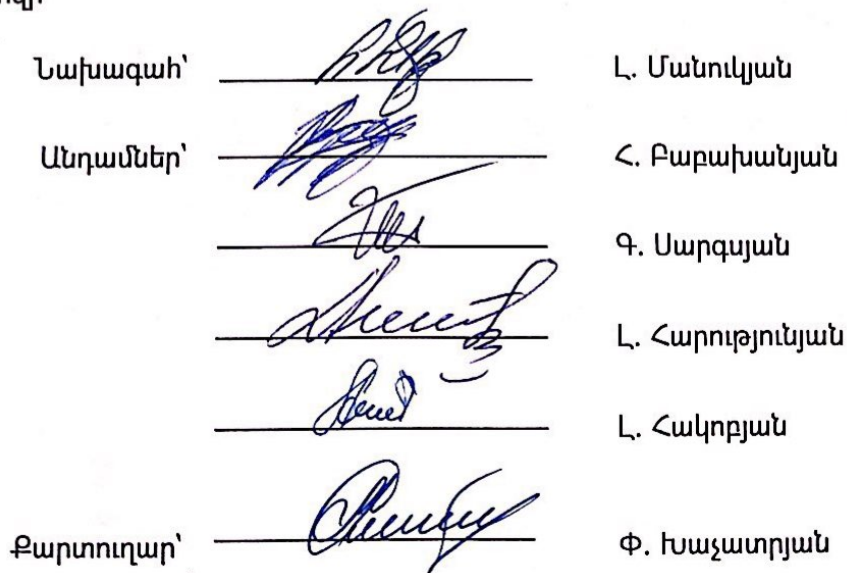 Նախագահ՝ Լ. Մանուկյան
Անդամներ՝ Հ. Բաբախանյան
Գ. Սարգսյան
Լ. Հարությունյան
Լ. Հակոբյան
Քարտուղար՝ Փ. Խաչատրյան